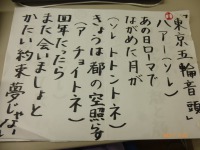 「東京五輪音頭」
ハアー(ソレ)
あの日ローマで
ながめた月が
(ソレ トトントネ)
きょうは都の空照らす
(ア チョイトネ)
四年たったら
また会いましょと
かたい約束 夢じゃない